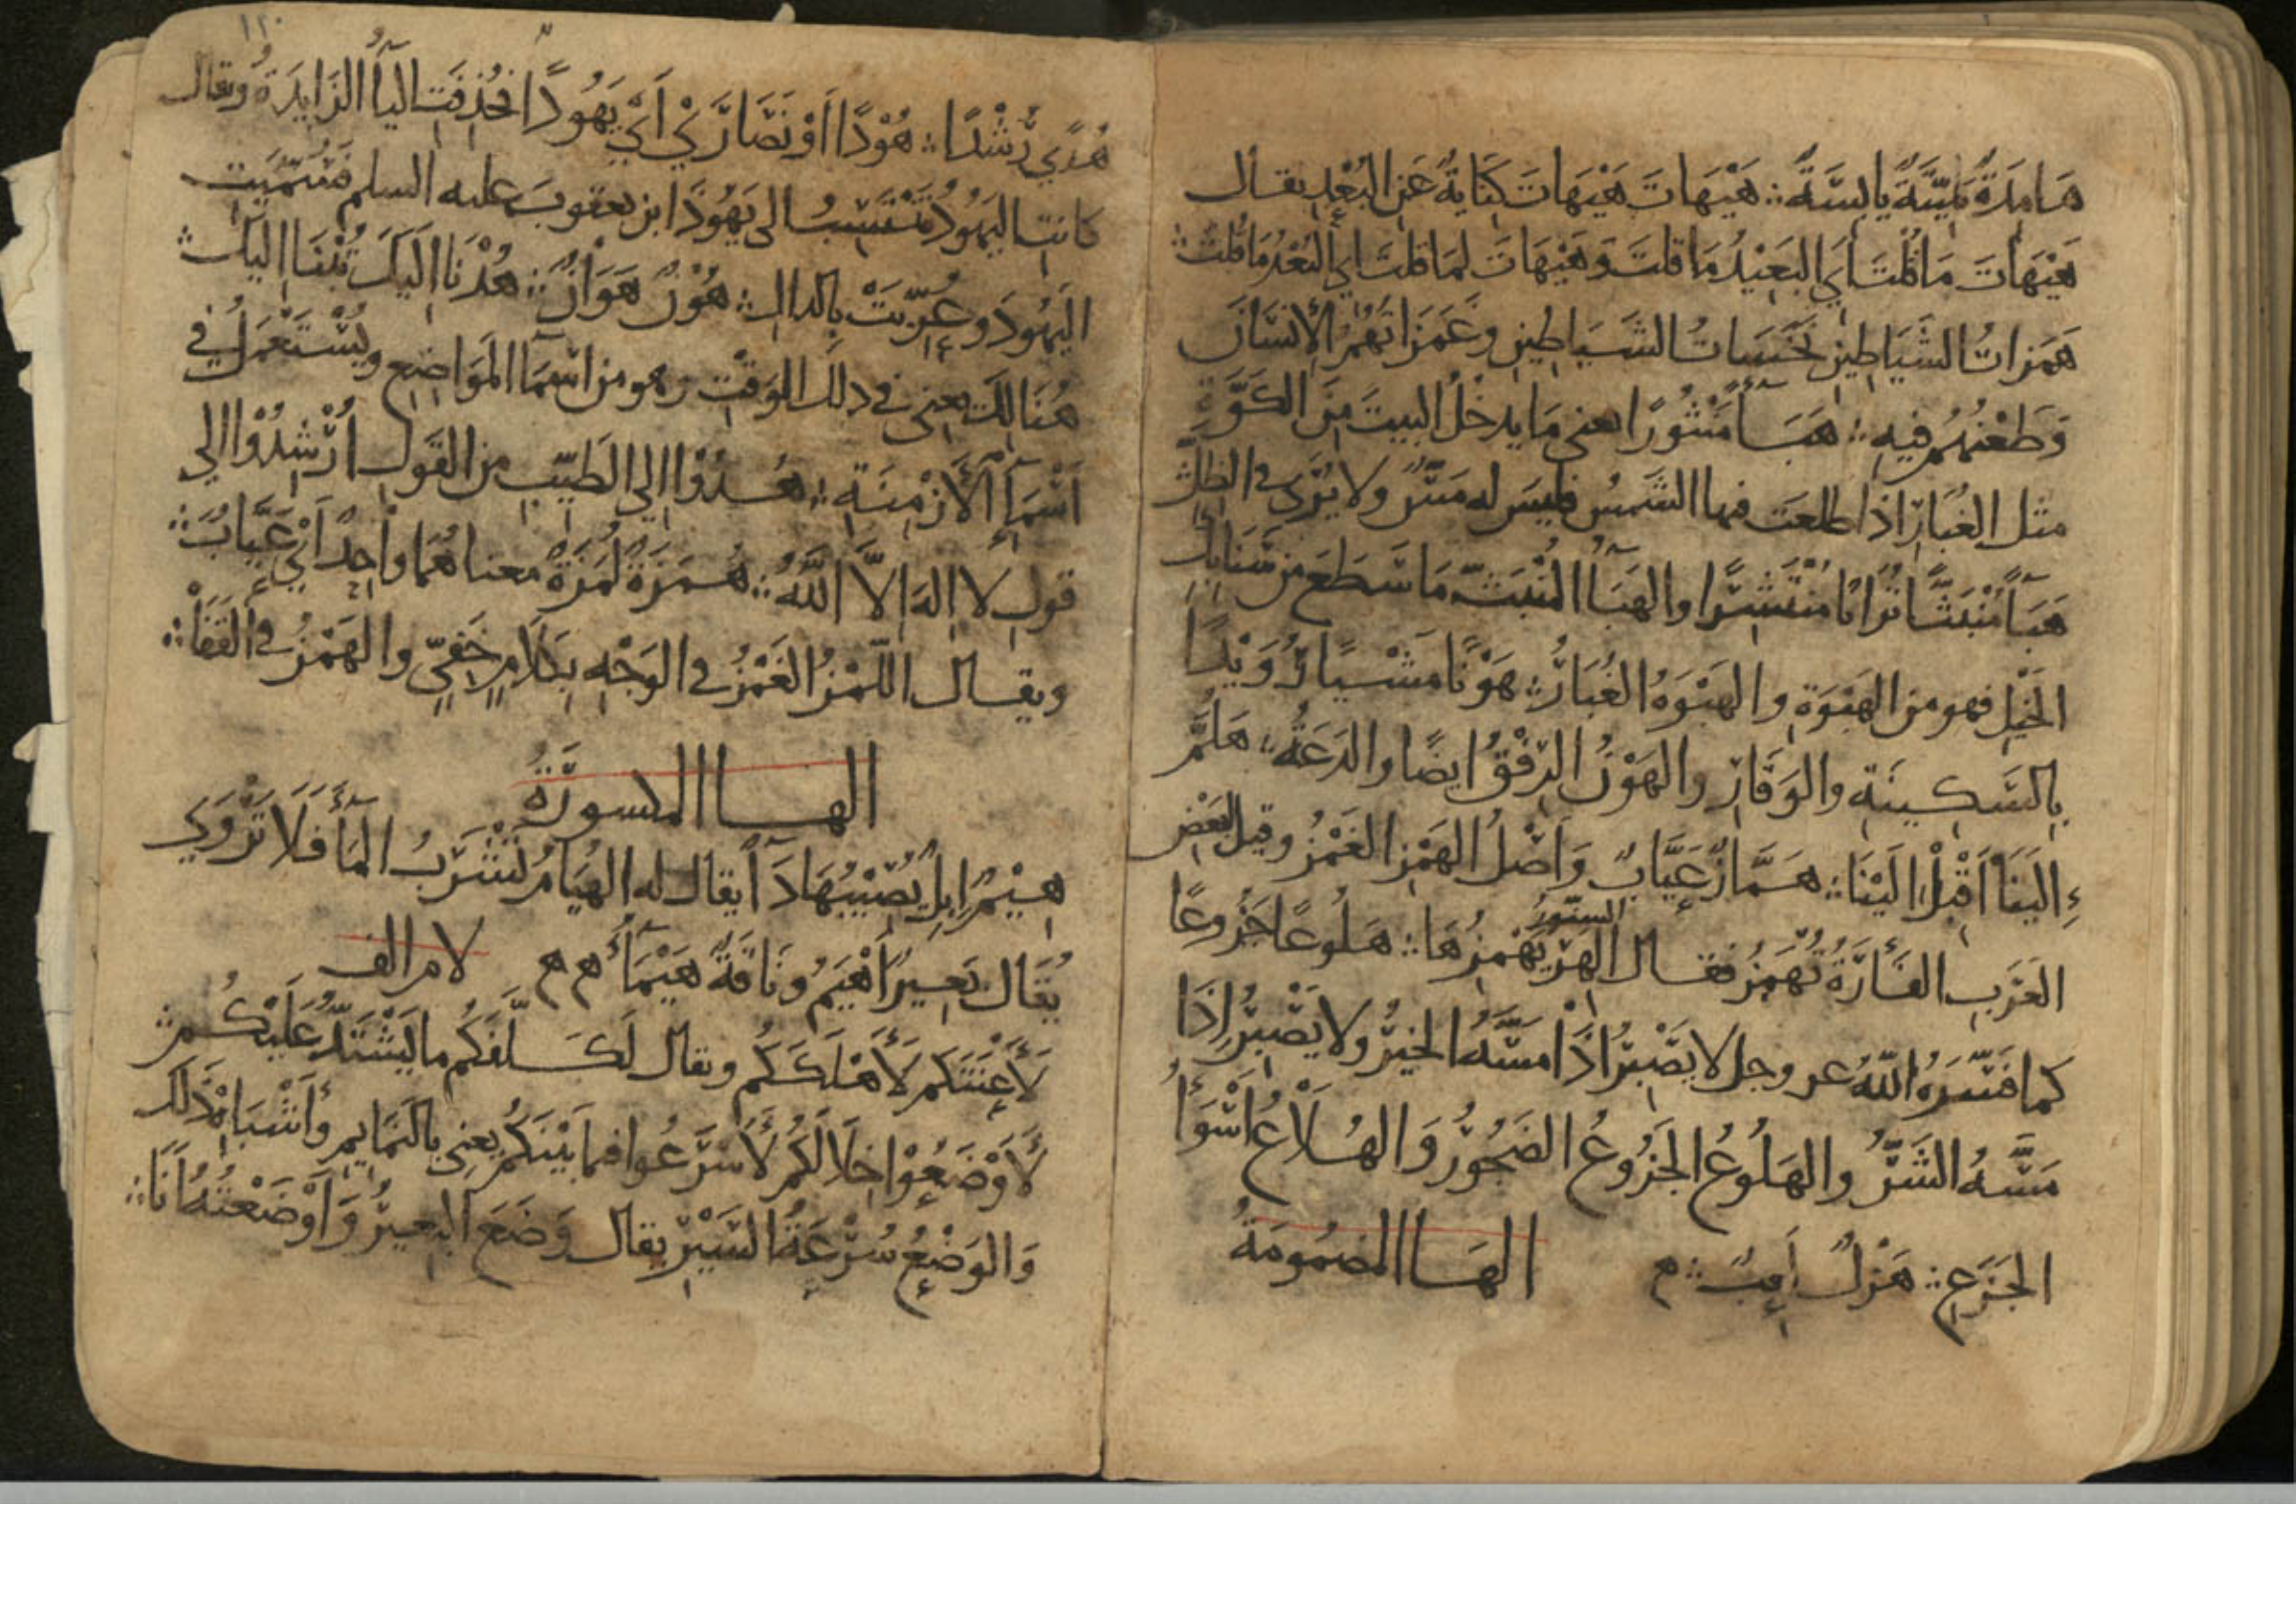 هَامِدَةً مَيِّتَةً يابِسَةً ؞ هَيْهَاتَ هَيْهَاتَ كِنَايَةٌ عَنِ البُعْدِ يقال
هَيْهَاتَ مَا قُلْتَ أي البَعِيْدُ مَا قلتَ وَهَيْهَاتَ لِمَا قلتَ اي البُعْدُ مَا قلتَ ؞
هَمَزاتُ الشَيَاطينِ نَخَسَاتُ الشَيَاطِينِ وغَمَزَاتُهُمُ الإنسَانَ
وَطَعْنُهُمْ فِيهِ ؞ هَبَآءً مَنْثُورًا يعني مَا يدخُلُ البيتَ مِنَ الكَوَّةِ
مثل الغُبَارِ اذا طلعَت فيها الشَمسُ فليسَ له مَسٌّ ولا يُرَى في الظِلِّ
هَبَآءً مُنْبَثًّا تُرَابًا مُنْتَشِرًا والهَبَآءُ المُنْبَثُّ مَا سَطَعَ من سَنَابِكِ
الخَيْلِ فهو من الهَبْوَةِ والهَبْوَةُ الغُبَارُ ؞ هَوْنًا مَشْيًا رُوَيْدًا
بِالسَّكِينَةِ والوَقَارِ والهَوْنُ الرِفْقُ ايضًا والدَعَةُ ؞ هَلُمَّ
إِلَيْنَا اَقْبِلْ اِلَيْنَا ؞ هَمَّازٍ عَيَّابٍ وَاَصْلُ الهَمْزِ الغَمْزُ وقيل لبَعْضِ
العَرَبِ الفَأرَةُ تُهْمَزُ فقال السِنَّوْرُ الهِرُّ يَهْمِزُهَا ؞ هَلُوعًا جَزُوعًا
كما فَسَّرَهُ اللهُ عز وجل لا يَصْبِرُ اذَا مَسَّهُ الخيرُ ولا يَصْبِرُ إِذَا
مَسَّهُ الشَرُّ والهَلُوعُ الجَزُوعُ الضَجُوْرُ وَالهُلَاعُ اَسْوَأُ
الجَزَعِ ؞ هَزْلٌ لَعِبٌ ؞ م الهَا المضمُومَةُ
١٢٠
هُدًى رُشْدًا ؞ هُوْدًا اَوْ نَصَارَى اَيْ يَهُودًا فحُذِفَتِ اليآءُ الزَايِدَةُ ويقال
كانتِ اليَهُودُ تَنْتَسِبُ الى يَهُوذَا ابن يعقوبَ عليه السلم فَسُمِّيَتِ
اليَهُودَ وعُرِّبَتْ بِالدال ؞ هُوْنٌ هَوَانٌ ؞ هُدْنَا اِلَيْكَ تُبْنَا اليكَ ؞
هُنَالِكَ يعني في ذلكَ الوَقْتِ وهو من اسْمَآءِ المَوَاضِع ويُسْتَعْمَلُ في
اَسْمَآءِ الأزْمِنَةِ ؞ هُدُوْا إلى الطَيِّبِ من القَولِ اُرْشِدُوْا الى
قولِ لا إلهَ الَّا اللّهُ ؞ هُمَزَةٌ لُمَزَةٌ معناهُمَا واحِدٌ اَيْ عَيَّابٌ ؞
ويقال اللَمْزُ الغَمْزُ في الوَجْهِ بِكَلَامٍ خَفِيٍّ والهَمْزُ في القَفَا ؞
الهَا المكسورَةُ
هِيْمٌ إِبِلٌ يُصِيْبُهَا دَآءٌ يقال له الهُيَامُ تَشْرَبُ المَآءَ فَلَا تَرْوَى
يُقَال بَعِيرٌ اَهْيَمُ ونَاقَةٌ هَيْمَآءُ م م لام الف
لَأَعْنَتَكم لَأَهْلَكَكُم ويقال لَكَلَّفَكُم ما يَشْتَدُّ عَلَيْكُمْ ؞
لَأَوْضَعُوْا خِلَالَكُم لَأَسْرَعُوا فيما بَيْنَكُم يعني بِالنَمَايِمِ وأشْبَاهِ ذلك
وَالوَضْعُ سُرْعَةُ السَيْرِ يقال وَضَعَ البَعِيرُ وَاَوْضَعْتُهُ اَنَا ؞